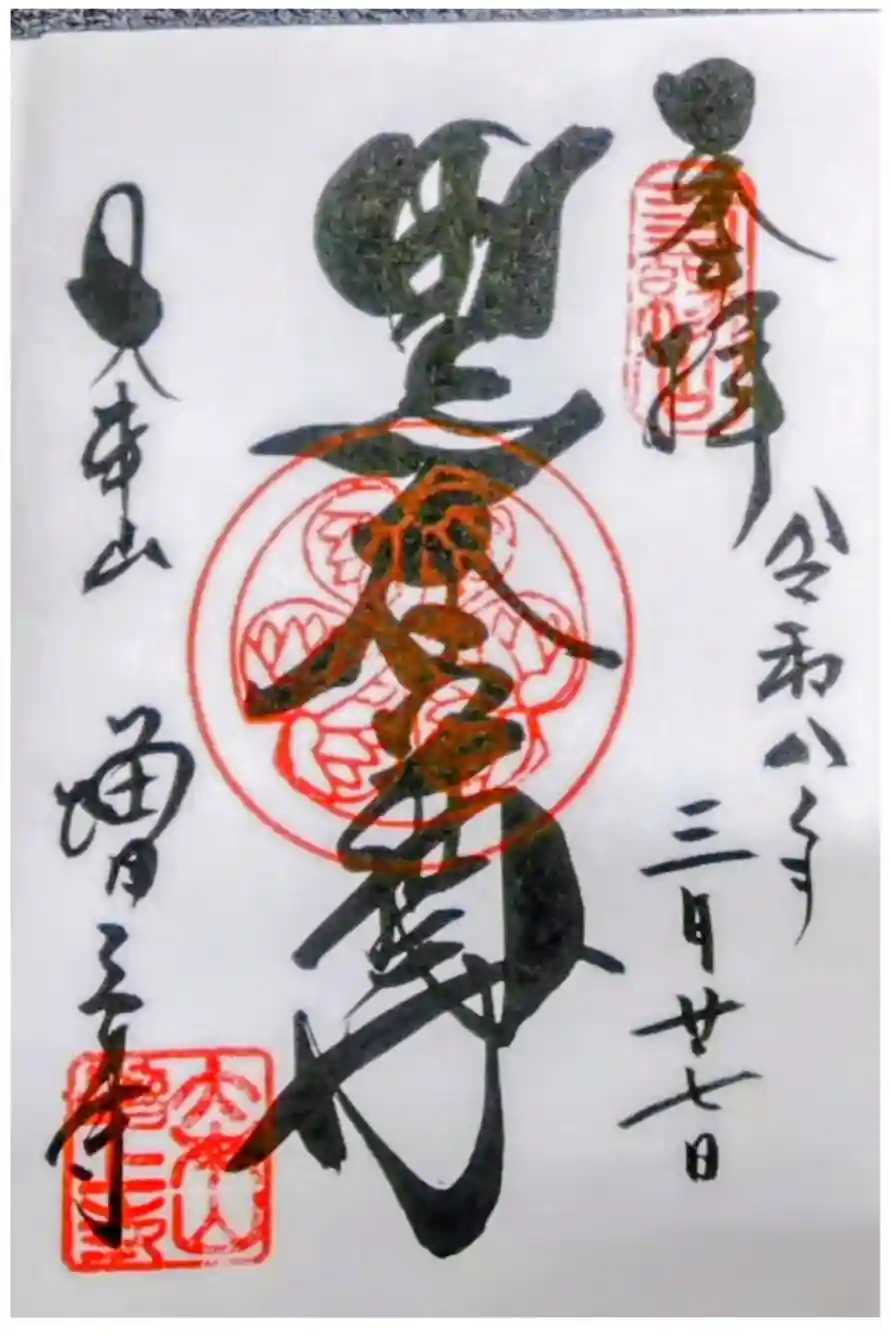 奉拝
令和八年
三月廿七日
黒本尊
大本山
増上寺
大本山
増上寺